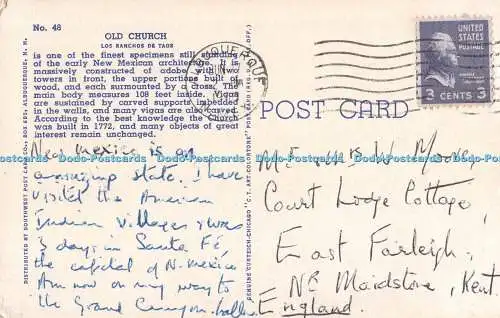 No. 48
OLD CHURCH
LOS RANCHOS DE TAOS
is one of the finest specimens still standing
of the early New Mexican architecture. It is
massively constructed of adobe with two
towers in front, the upper portions built of
wood, and each surmounted by a cross. The
main body measures 108 feet inside. Vigas
are sustained by carved supports imbedded
in the walls, and many vigas are also carved.
According to the best knowledge the Church
was built in 1772, and many objects of great
interest remain undisturbed.
New Mexico is an
amazing state. I have
visited the American
Indian villages & was
3 days in Santa Fé
the capital of N. Mexico
Am now on my way to
the Grand Canyon.
DISTRIBUTED BY SOUTHWEST POST CARD CO., BOX 685, ALBUQUERQUE, N. M.
GENUINE CURTEICH-CHICAGO "C.T. ART-COLORTONE" POST CARD (REG. U.S. PAT. OFF.)
ALBUQUERQUE
JUN
UNITED STATES
POSTAGE
3 CENTS 3
POST CARD
Mr & Mrs W Moores
Court Lodge Cottage,
East Farleigh,
Nr Maidstone, Kent
England.
Dodo-Postcards Dodo-Postcards Dodo-Postcards Dodo-Postcards